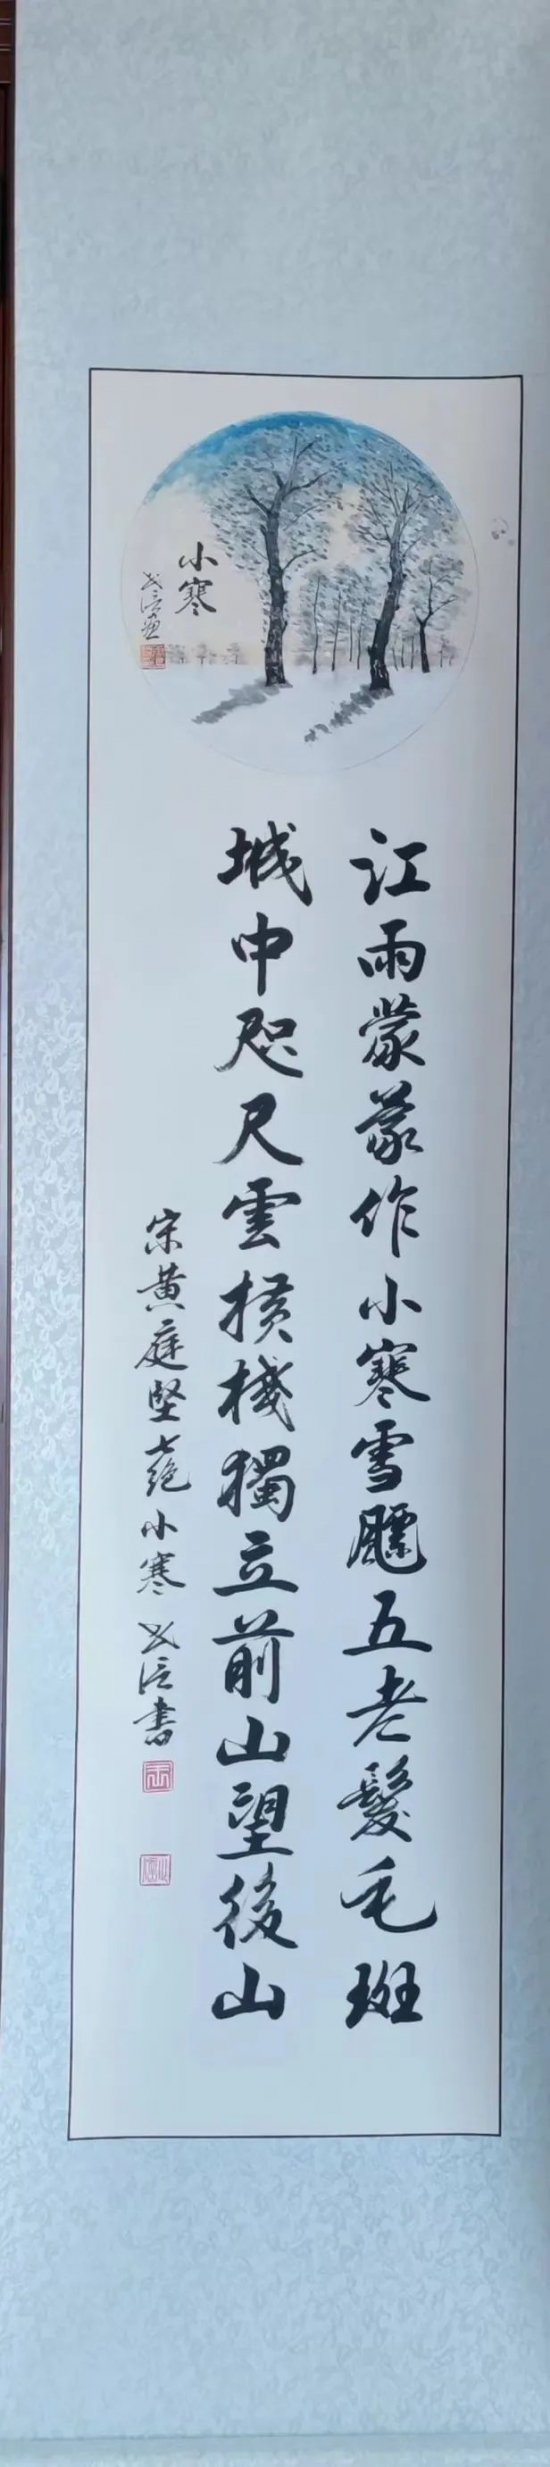 小寒
江雨蒙蒙作小寒雪飄五老髮毛斑
城中咫尺雲横棧獨立前山望後山
宋黄庭堅七絶小寒 書